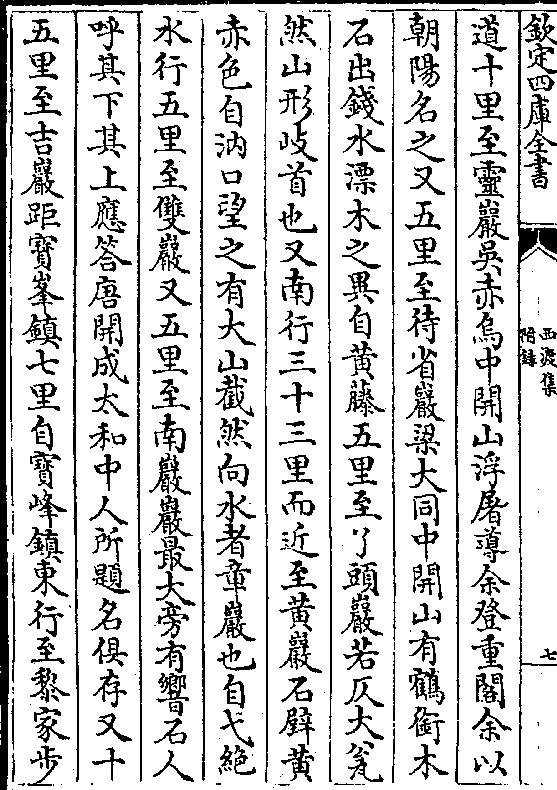 欽定四庫全書
西渡集
附錄
七
道十里至靈巖吳赤烏中開山浮屠導余登重閣余以
朝陽名之又五里至待省巖梁大同中開山有鶴銜木
石出錢水漂木之異自黄藤五里至丫頭巖若仄大瓮
然山形岐首也又南行三十三里而近至黄巖石壁黄
赤色自汭口望之有大山截然向水者章巖也自弋絶
水行五里至雙巖又五里至南巖巖最大旁有響石人
呼其下其上應答唐開成太和中人所題名俱存又十
五里至吉巖距寳峯鎮七里自寳峰鎮東行至黎家步